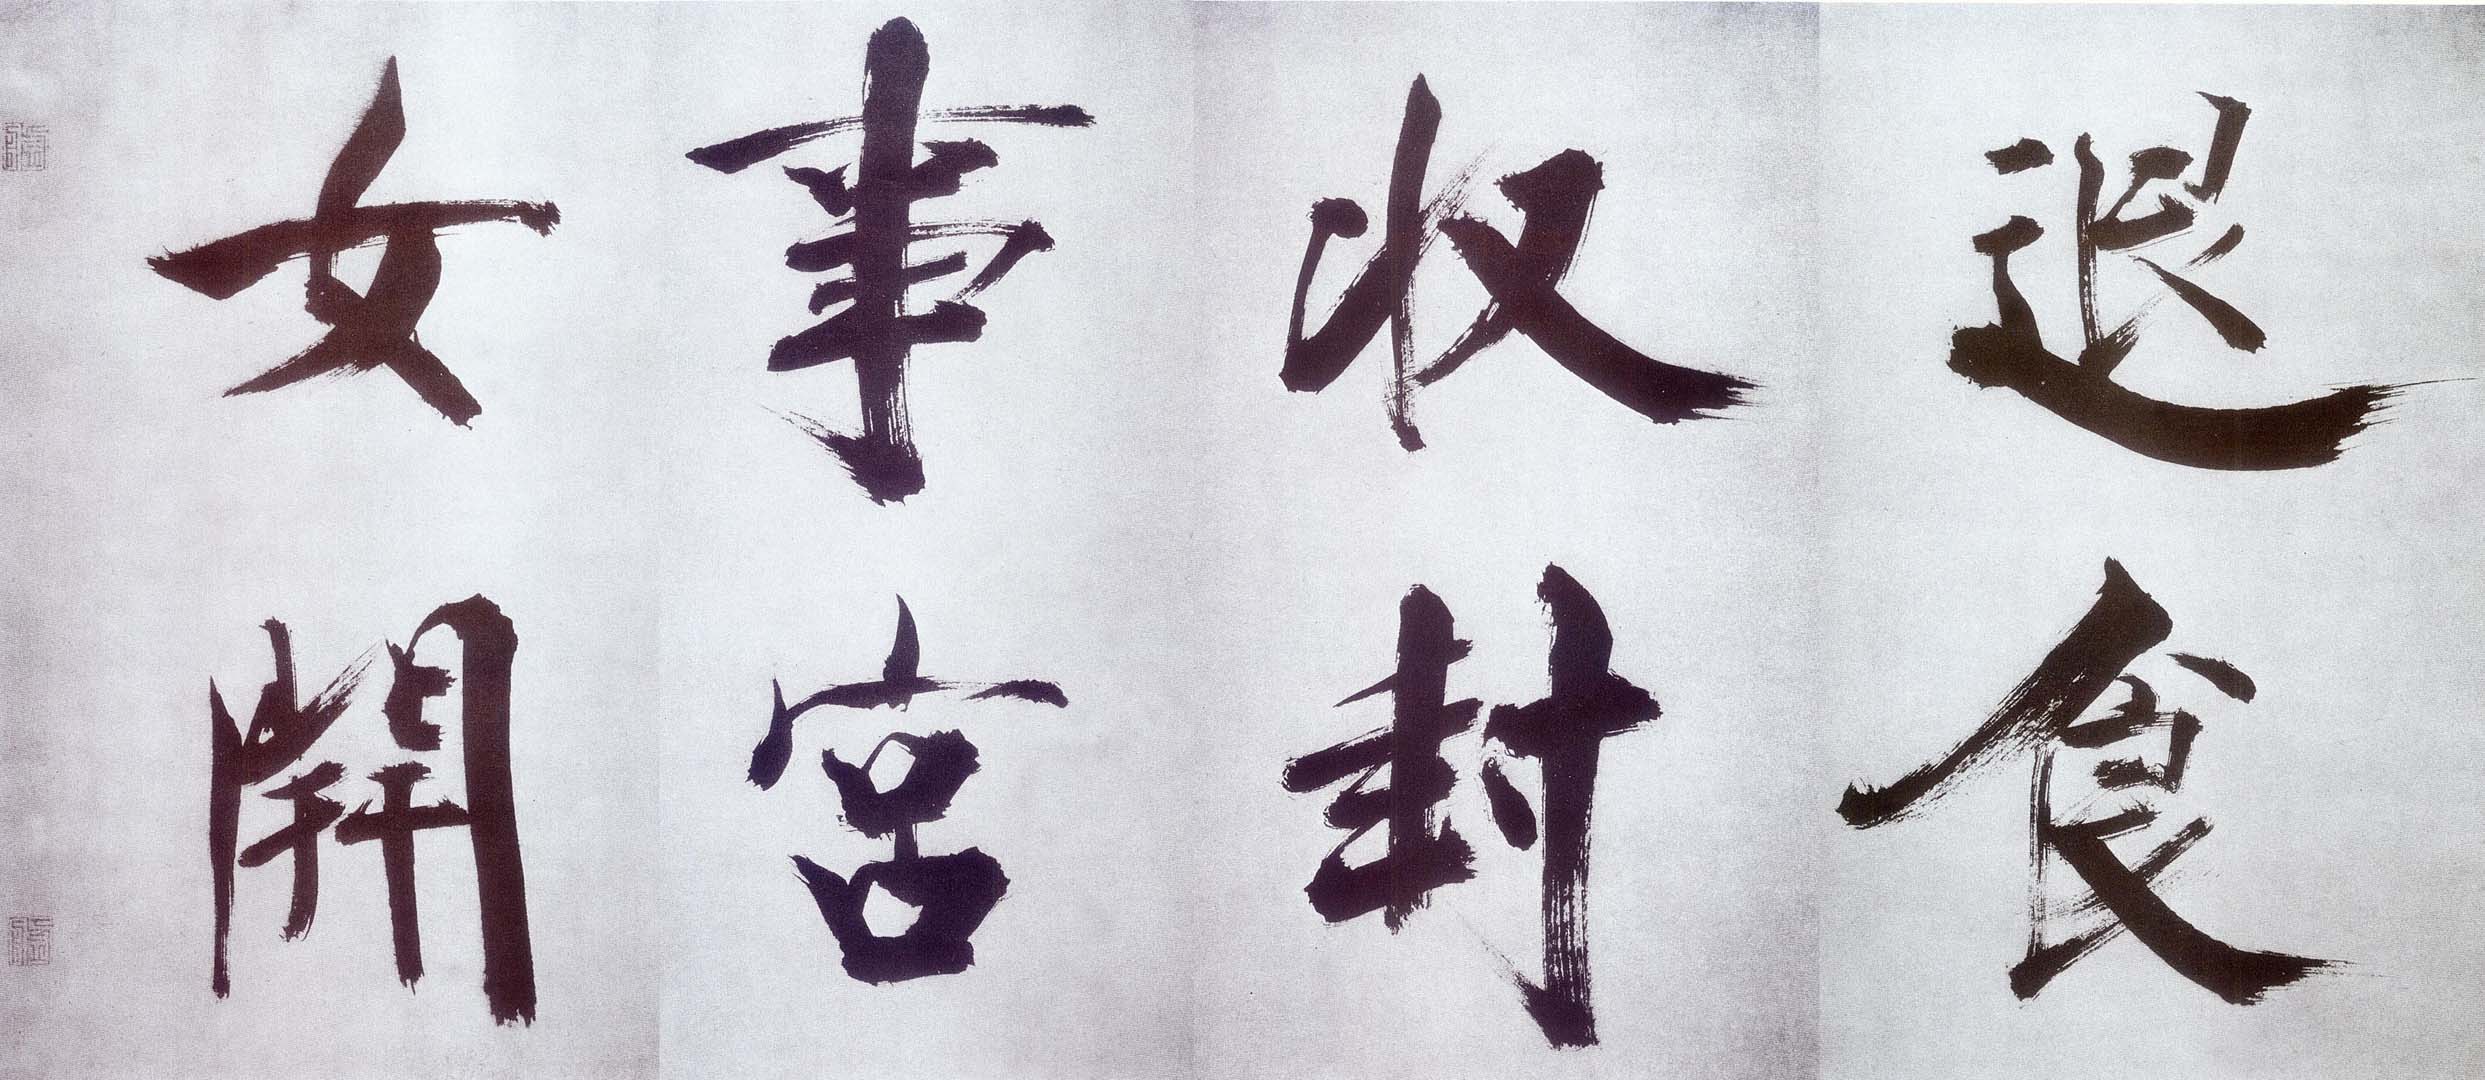 退食
収封
事宮
女開